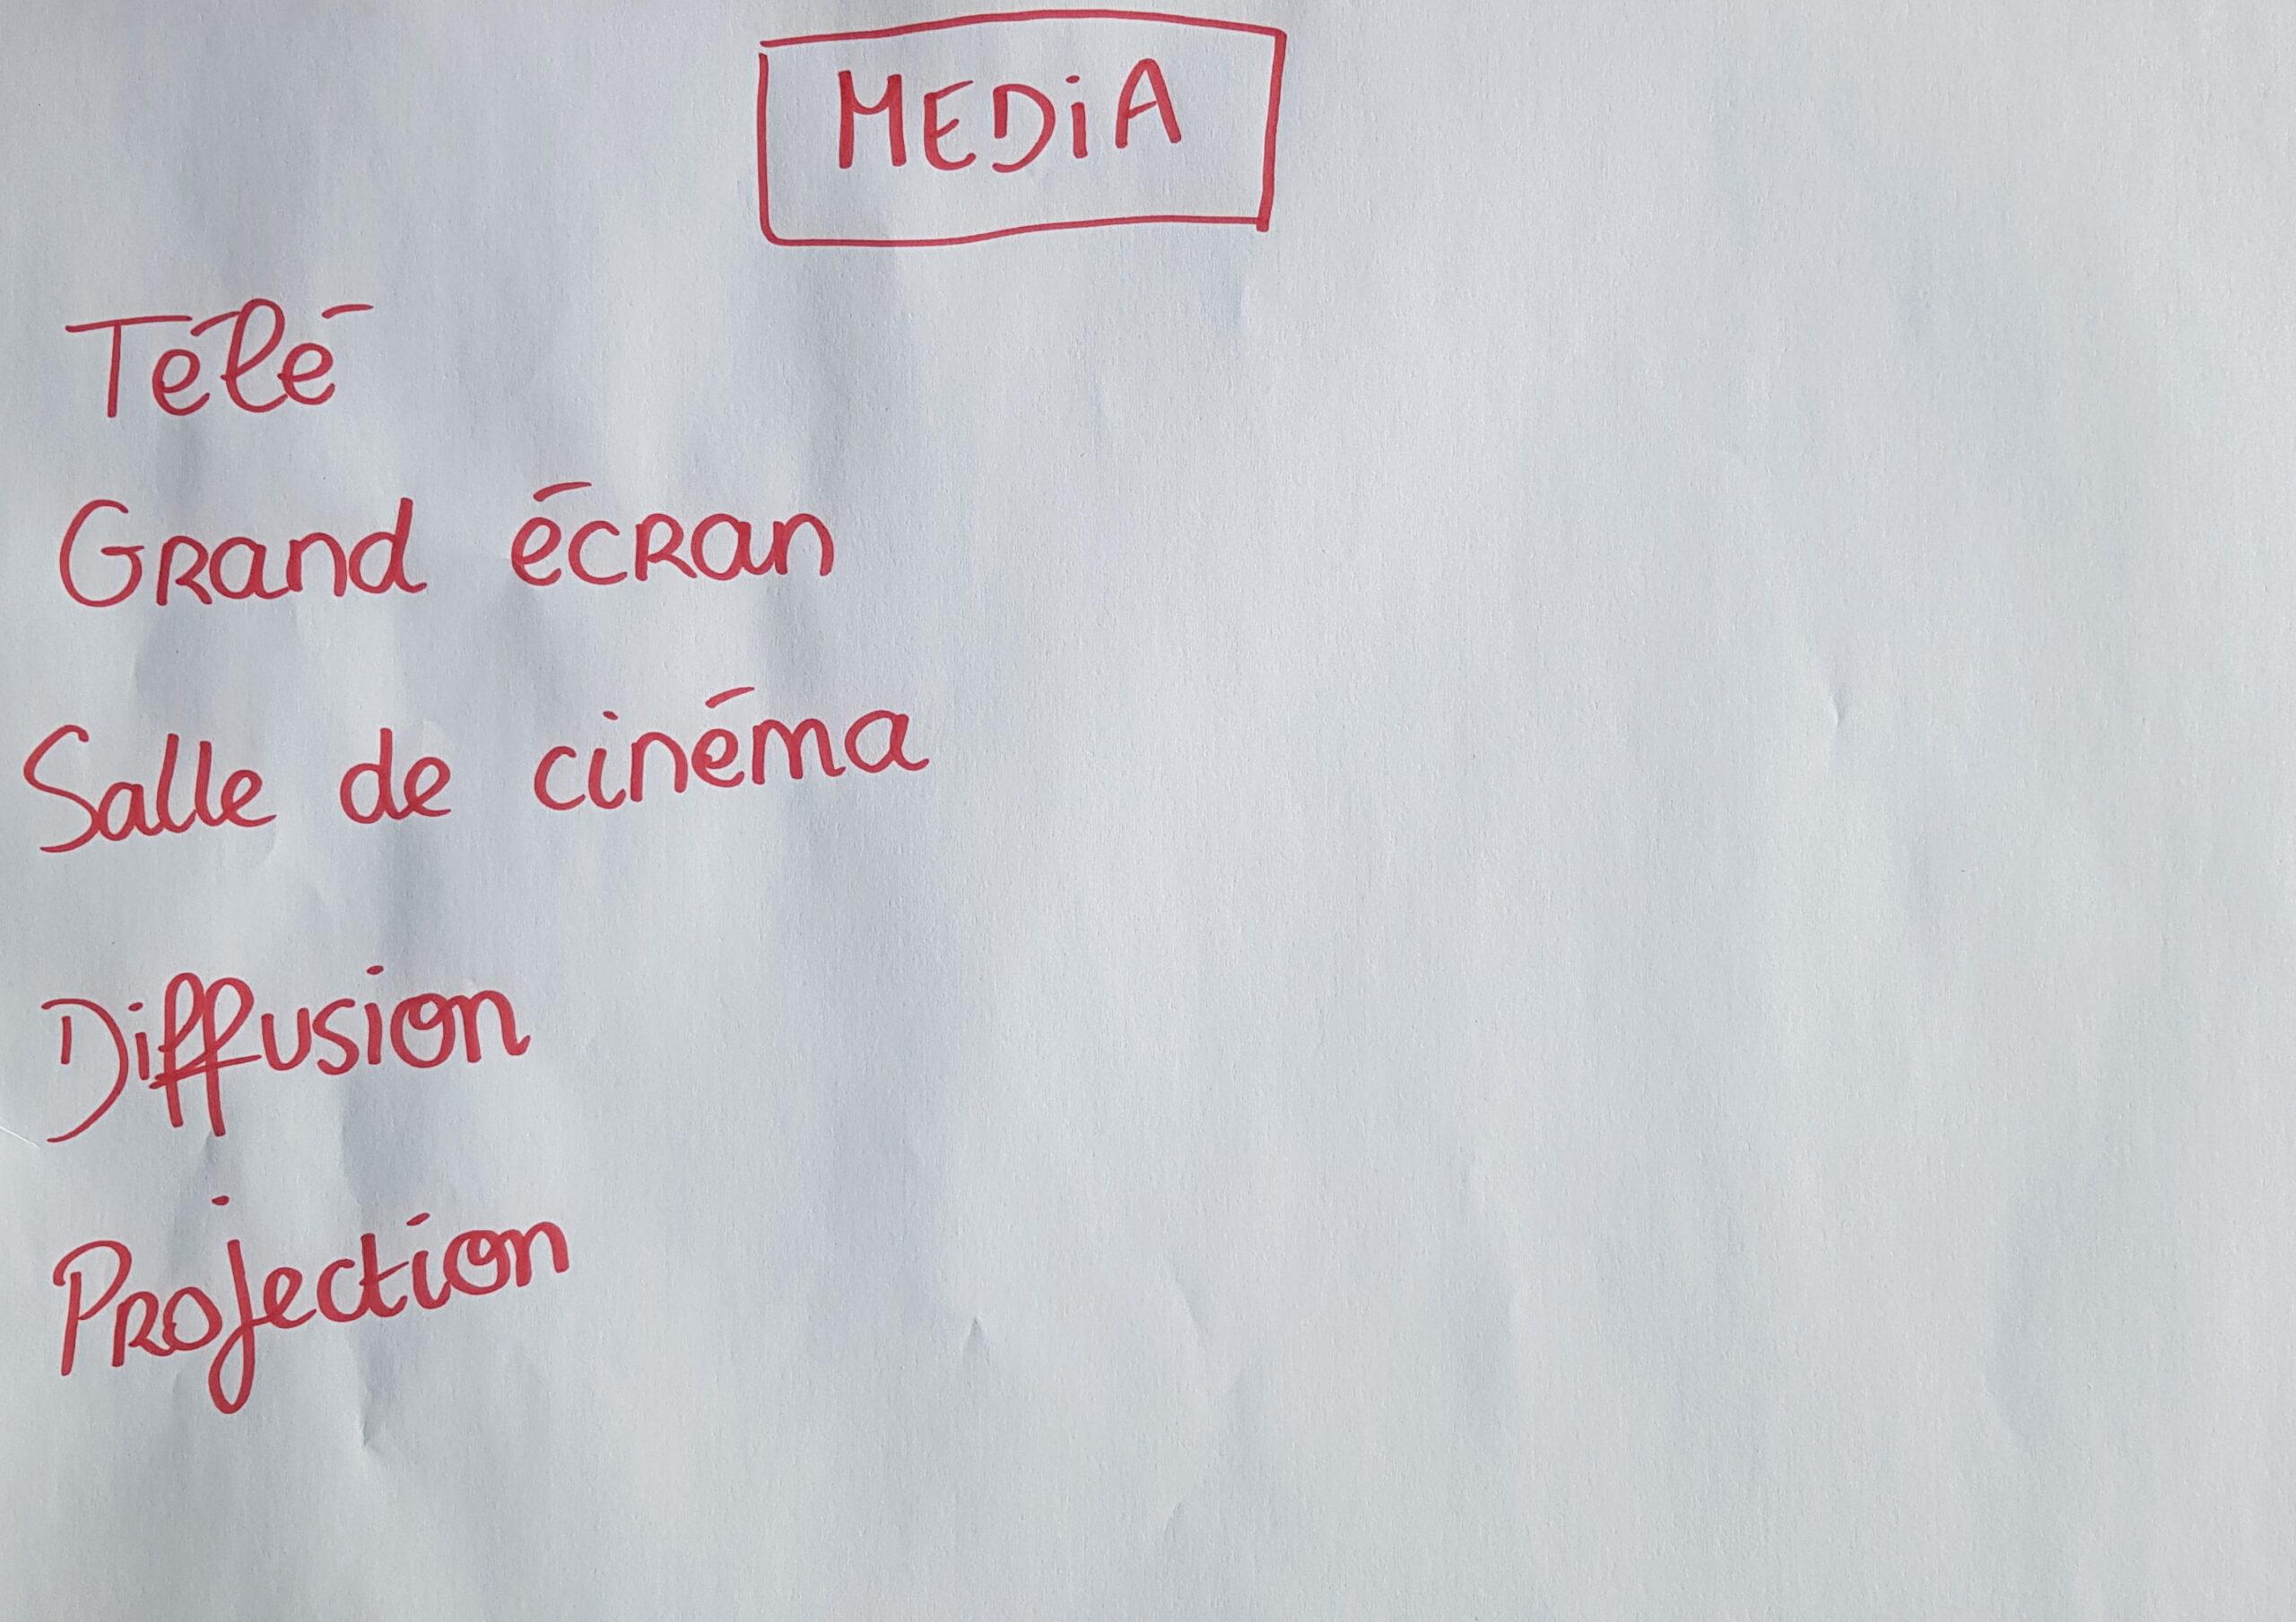 MEDiA
Télé
Grand écran
Salle de cinéma
Diffusion
Projection